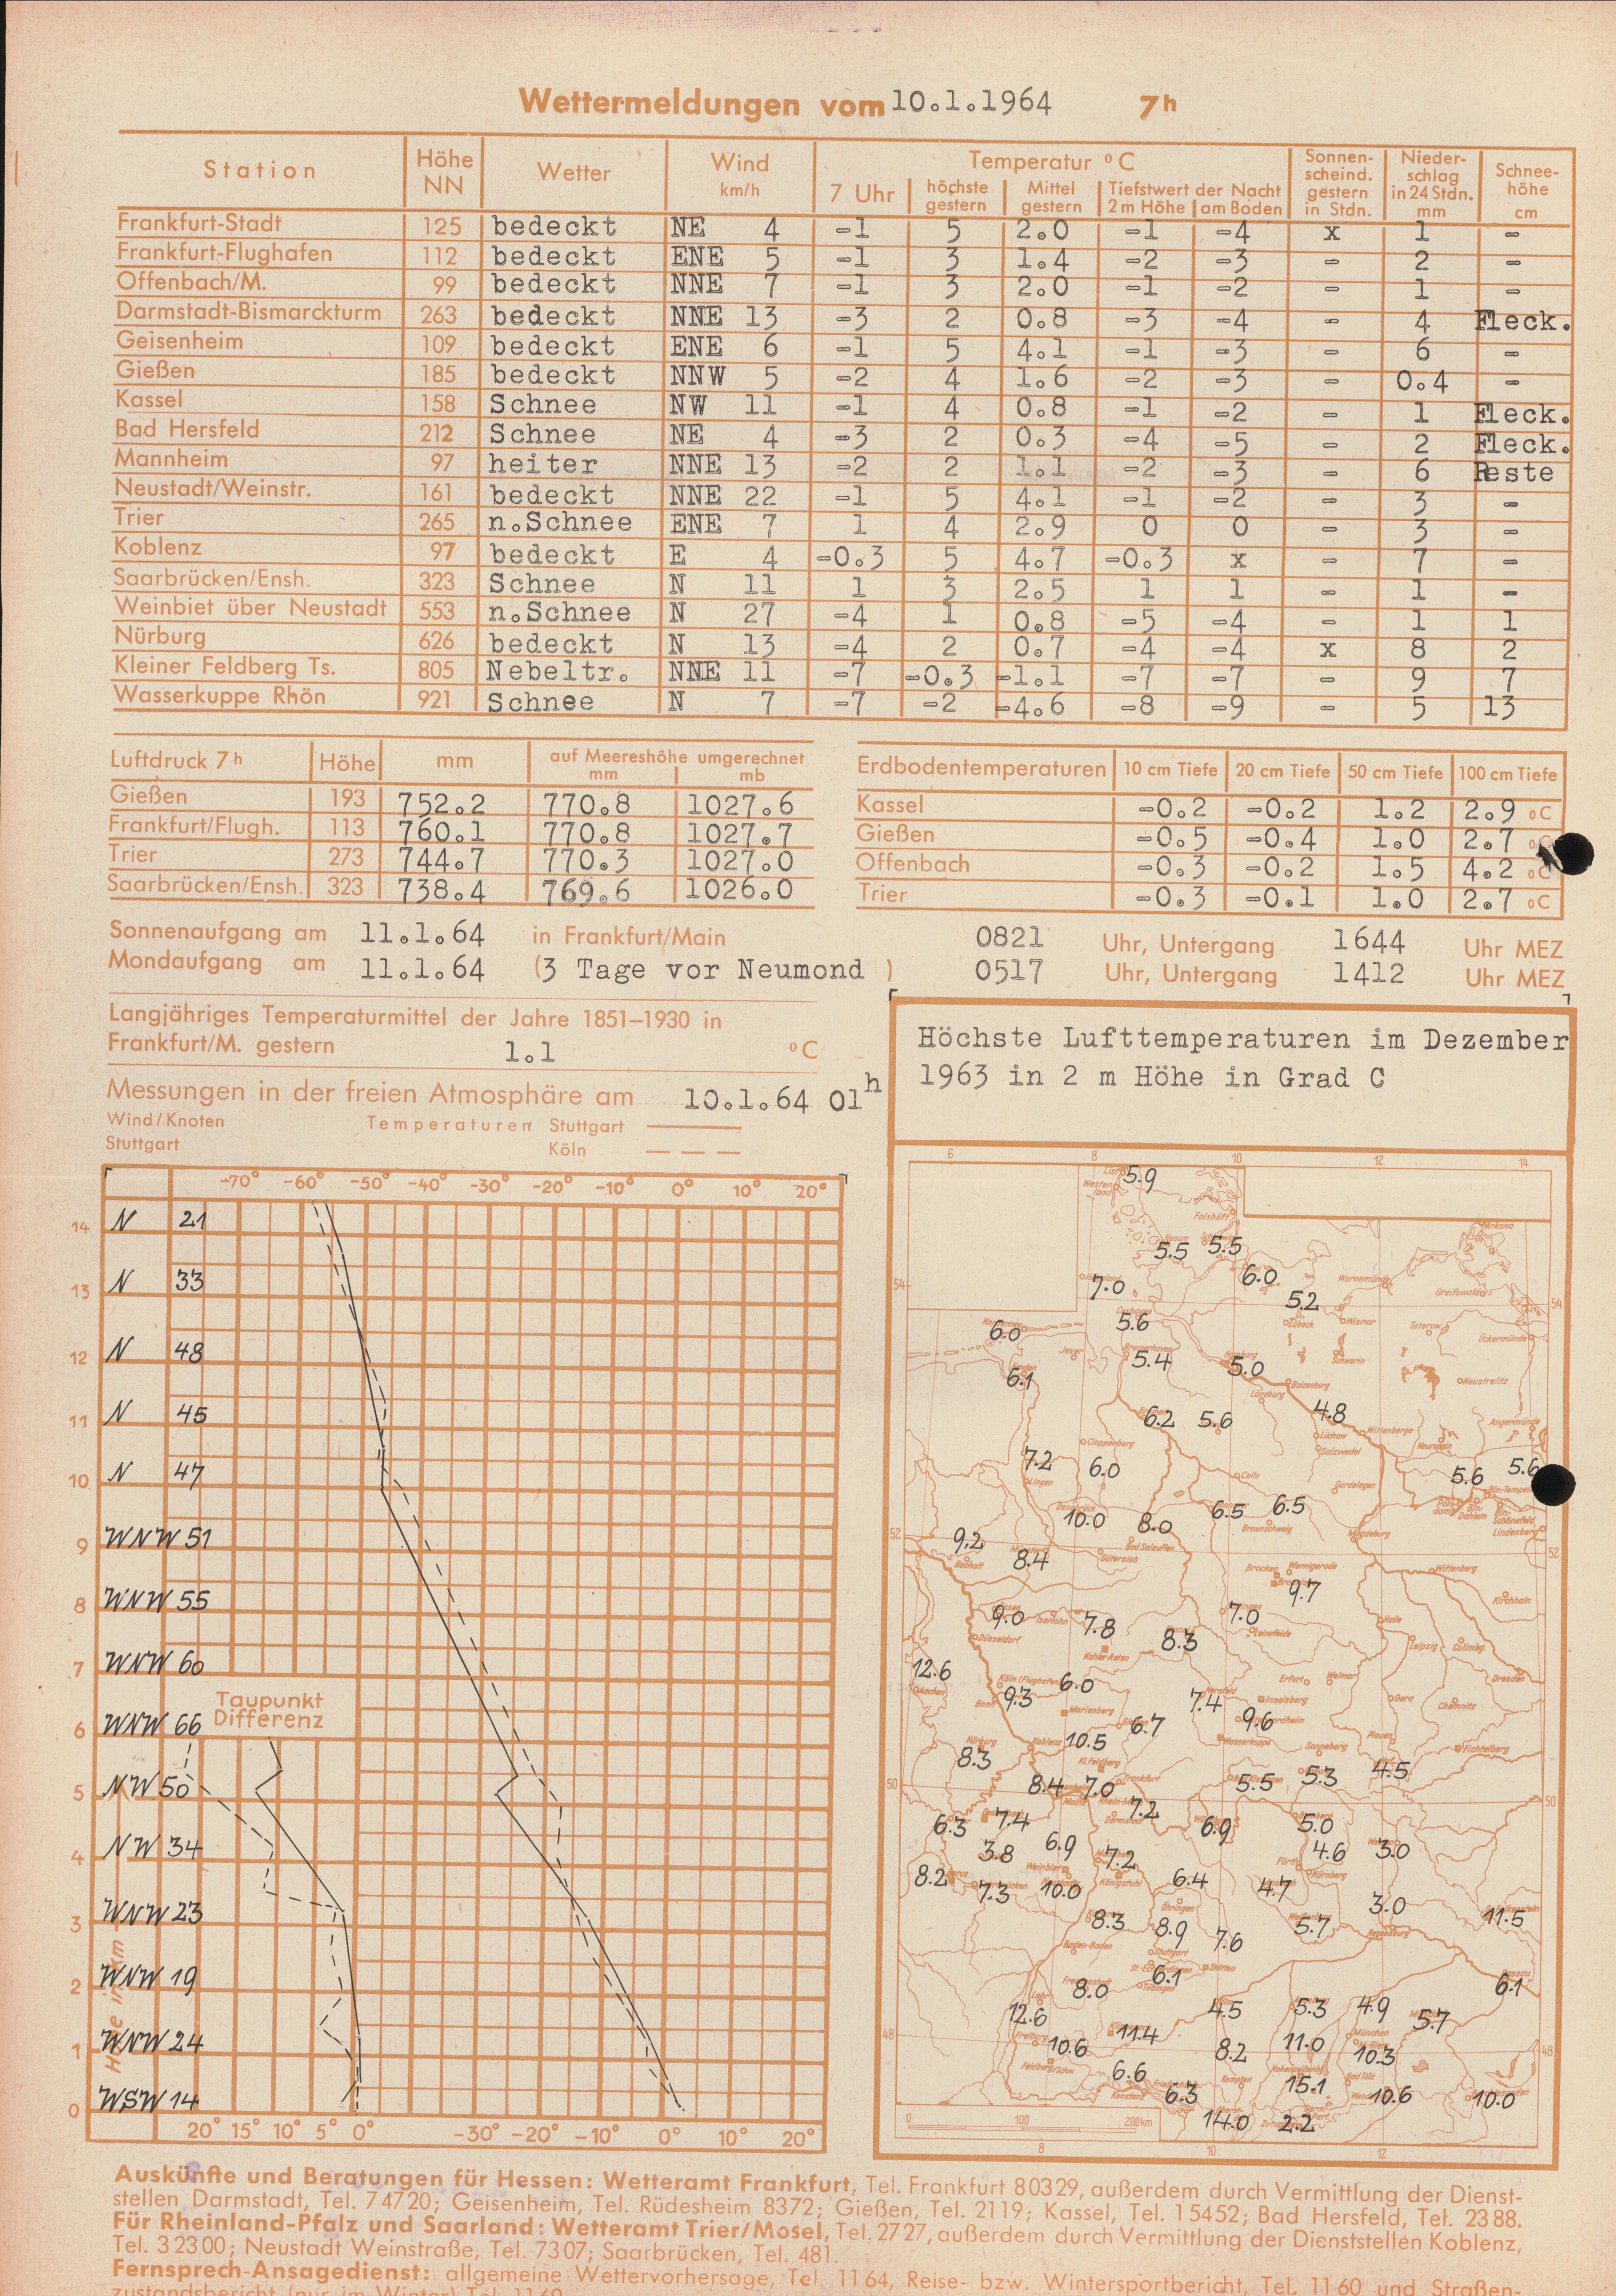 Wettermeldungen vom 10.1.1964 7h
Station Höhe NN Wetter Wind km/h Temperatur °C Sonnenscheind. gestern in Stdn. Niederschlag in 24 Stdn. mm Schneehöhe cm
7 Uhr höchste gestern Mittel gestern Tiefstwert der Nacht 2 m Höhe am Boden
Frankfurt-Stadt 125 bedeckt NE 4 -1 5 2.0 -1 -4 x 1 -
Frankfurt-Flughafen 112 bedeckt ENE 5 -1 3 1.4 -2 -3 - 2 -
Offenbach/M. 99 bedeckt NNE 7 -1 3 2.0 -1 -2 - 1 -
Darmstadt-Bismarckturm 263 bedeckt NNE 13 -3 2 0.8 -3 -4 - 4 Fleck.
Geisenheim 109 bedeckt ENE 6 -1 5 4.1 -1 -3 - 6 -
Gießen 185 bedeckt NNW 5 -2 4 1.6 -2 -3 - 0.4 -
Kassel 158 Schnee NW 11 -1 4 0.8 -1 -2 - 1 Fleck.
Bad Hersfeld 212 Schnee NE 4 -3 2 0.3 -4 -5 - 2 Fleck.
Mannheim 97 heiter NNE 13 -2 2 1.1 -2 -3 - 6 Reste
Neustadt/Weinstr. 161 bedeckt NNE 22 -1 5 4.1 -1 -2 - 3 -
Trier 265 n.Schnee ENE 7 1 4 2.9 0 0 - 3 -
Koblenz 97 bedeckt E 4 -0.3 5 4.7 -0.3 x - 7 -
Saarbrücken/Ensh. 323 Schnee N 11 1 3 2.5 1 1 - 1 -
Weinbiet über Neustadt 553 n.Schnee N 27 -4 1 0.8 -5 -4 - 1 1
Nürburg 626 bedeckt N 13 -4 2 0.7 -4 -4 x 8 2
Kleiner Feldberg Ts. 805 Nebeltr. NNE 11 -7 -0.3 -1.1 -7 -7 - 9 7
Wasserkuppe Rhön 921 Schnee N 7 -7 -2 -4.6 -8 -9 - 5 13
Luftdruck 7h Höhe mm auf Meereshöhe umgerechnet mm mb
Gießen 193 752.2 770.8 1027.6
Frankfurt/Flugh. 113 760.1 770.8 1027.7
Trier 273 744.7 770.3 1027.0
Saarbrücken/Ensh. 323 738.4 769.6 1026.0
Erdbodentemperaturen 10 cm Tiefe 20 cm Tiefe 50 cm Tiefe 100 cm Tiefe
Kassel -0.2 -0.2 1.2 2.9 °C
Gießen -0.5 -0.4 1.0 2.7
Offenbach -0.3 -0.2 1.5 4.2 °C
Trier -0.3 -0.1 1.0 2.7 °C
Sonnenaufgang am 11.1.64 in Frankfurt/Main 0821 Uhr, Untergang 1644 Uhr MEZ
Mondaufgang am 11.1.64 (3 Tage vor Neumond ) 0517 Uhr, Untergang 1412 Uhr MEZ
Langjähriges Temperaturmittel der Jahre 1851–1930 in
Frankfurt/M. gestern 1.1 °C
Messungen in der freien Atmosphäre am 10.1.64 01h
Wind/Knoten Temperaturen Stuttgart
Stuttgart Köln
-70° -60° -50° -40° -30° -20° -10° 0° 10° 20°
14 N 21
13 N 33
12 N 48
11 N 45
10 N 47
9 WNW 51
8 WNW 55
7 WNW 60
Taupunkt
Differenz
6 WNW 66
5 NW 50
4 NW 34
3 WNW 23
2 WNW 19
1 WNW 24
0 WSW 14
20° 15° 10° 5° 0° -30° -20° -10° 0° 10° 20°
Höchste Lufttemperaturen im Dezember
1963 in 2 m Höhe in Grad C
6 8 10 12 14
5.9
Falshöft
Arkona
5.5 5.5
54 7.0 6.0 Warnemünde Greifswald
5.2 54
6.0 5.6 Lübeck Wismar Teterow Ückermünde
Jever 5.4 5.0 Schwerin
6.1 Boizenburg Neustrelitz
Lüneburg
6.2 5.6 4.8 Angermünde
Cloppenburg Lüchow Wittenberge
Salzwedel
7.2 6.0 Celle 5.6 5.6
Lingen Gardelegen
10.0 8.0 6.5 6.5
52 Braunschweig Magdeburg Lindenberg
9.2 8.4 Bad Salzuflen 52
Bocholt Gütersloh Brocken Wernigerode Wittenberg
9.7 Kirchhain
9.0 Iserlohn 7.8 7.0 Halle
Düsseldorf 8.3 Leinefelde Leipzig Collmbg.
Kahler Asten
12.6 6.0 Erfurt Weimar Dresden
Aachen Köln (Flughafen)
Bonn 9.3 Marienberg 7.4 Inselsberg Gera Chemnitz
6.7 9.6
Koblenz 10.5 Wasserkuppe Sonneberg Plauen Fichtelberg
8.3 Kl.Feldberg
50 8.4 7.0 Frankfurt 5.5 5.3 4.5 50
7.2
6.3 7.4 Darmstadt 6.9 5.0
3.8 6.9 7.2 4.6 3.0
Weinbiet Fürth Nürnberg
8.2 7.3 10.0 Königstuhl 6.4 4.7
Öhringen 3.0
8.3 8.9 7.6 5.7 11.5
Baden-Baden Stuttgart Regensburg
6.1 Stötten Passau
8.0 Tübingen 6.1
12.6 4.5 5.3 4.9 5.7
48 Freiburg 11.4 11.0 München 48
10.6 8.2 10.3
Feldberg/Schw. 6.6 Kempten Bad Tölz
Konstanz 6.3 15.1 10.6 10.0
14.0 2.2
0 100 200km
8 10 12
Auskünfte und Beratungen für Hessen: Wetteramt Frankfurt, Tel. Frankfurt 80329, außerdem durch Vermittlung der Dienst-
stellen Darmstadt, Tel. 74720; Geisenheim, Tel. Rüdesheim 8372; Gießen, Tel. 2119; Kassel, Tel. 15452; Bad Hersfeld, Tel. 2388.
Für Rheinland-Pfalz und Saarland: Wetteramt Trier/Mosel, Tel. 2727, außerdem durch Vermittlung der Dienststellen Koblenz,
Tel. 32300; Neustadt Weinstraße, Tel. 7307; Saarbrücken, Tel. 481.
Fernsprech-Ansagedienst: allgemeine Wettervorhersage, Tel. 1164, Reise- bzw. Wintersportbericht, Tel. 1160 und Straßen-
zustandsbericht (nur im Winter) Tel. 1169